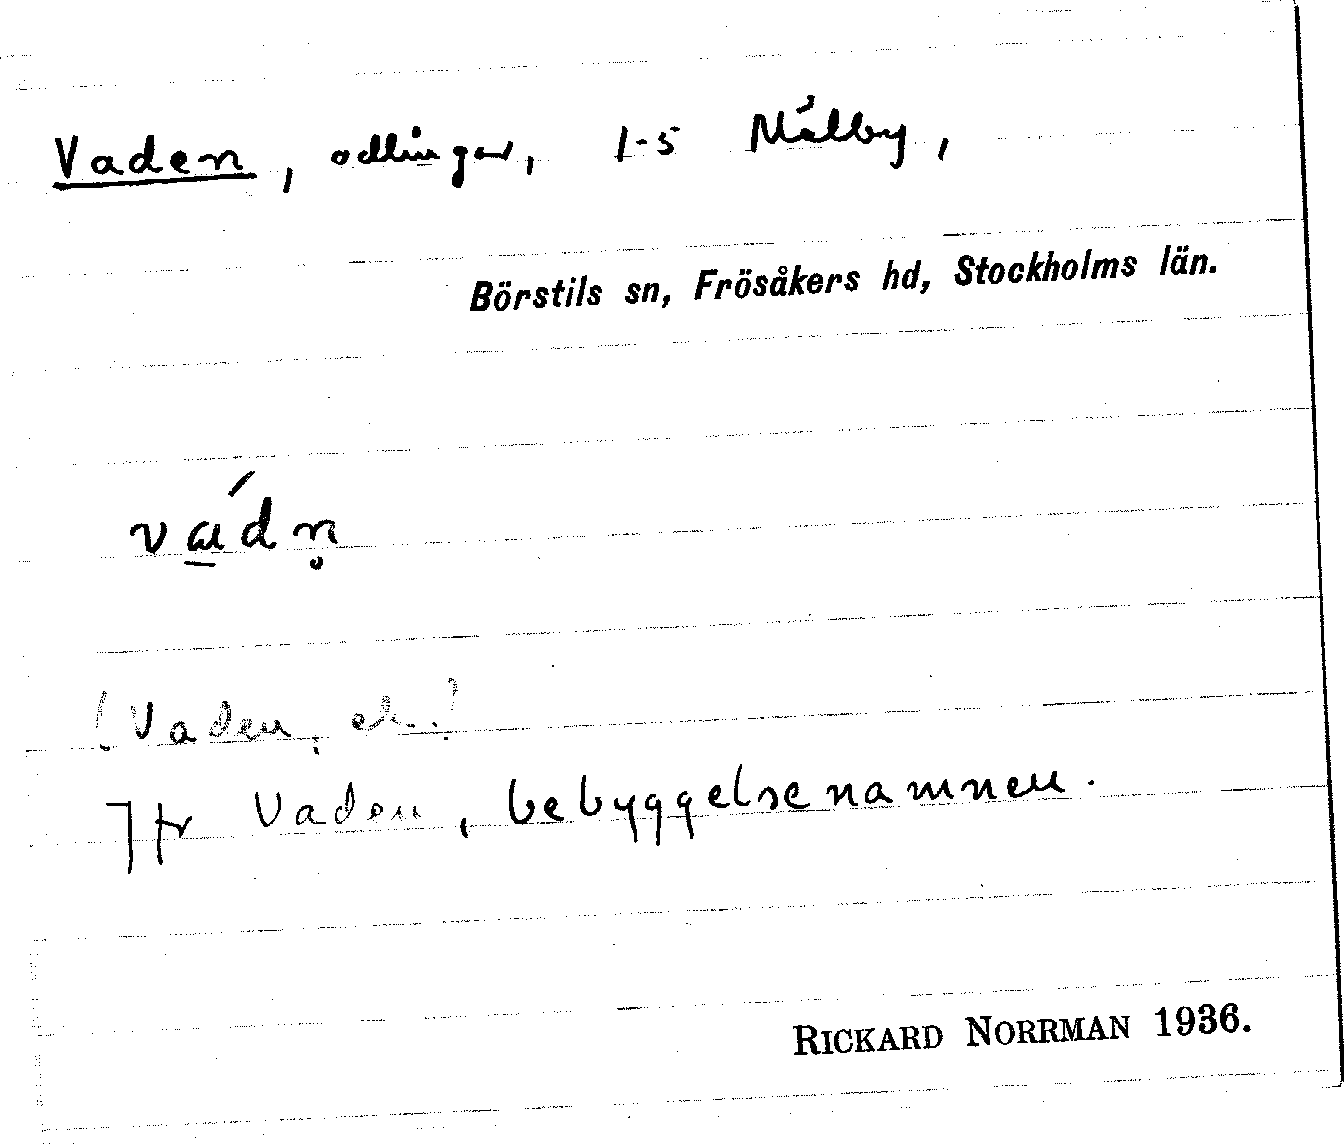 Vaden, odlingar, 1-5 Målby,
Börstils sn, Frösåkers hd, Stockholms län.
vά̠dn̥
(Vaden, ek.)
Jfr Vaden, bebyggelsenamnen.
RICKARD NORRMAN 1936.